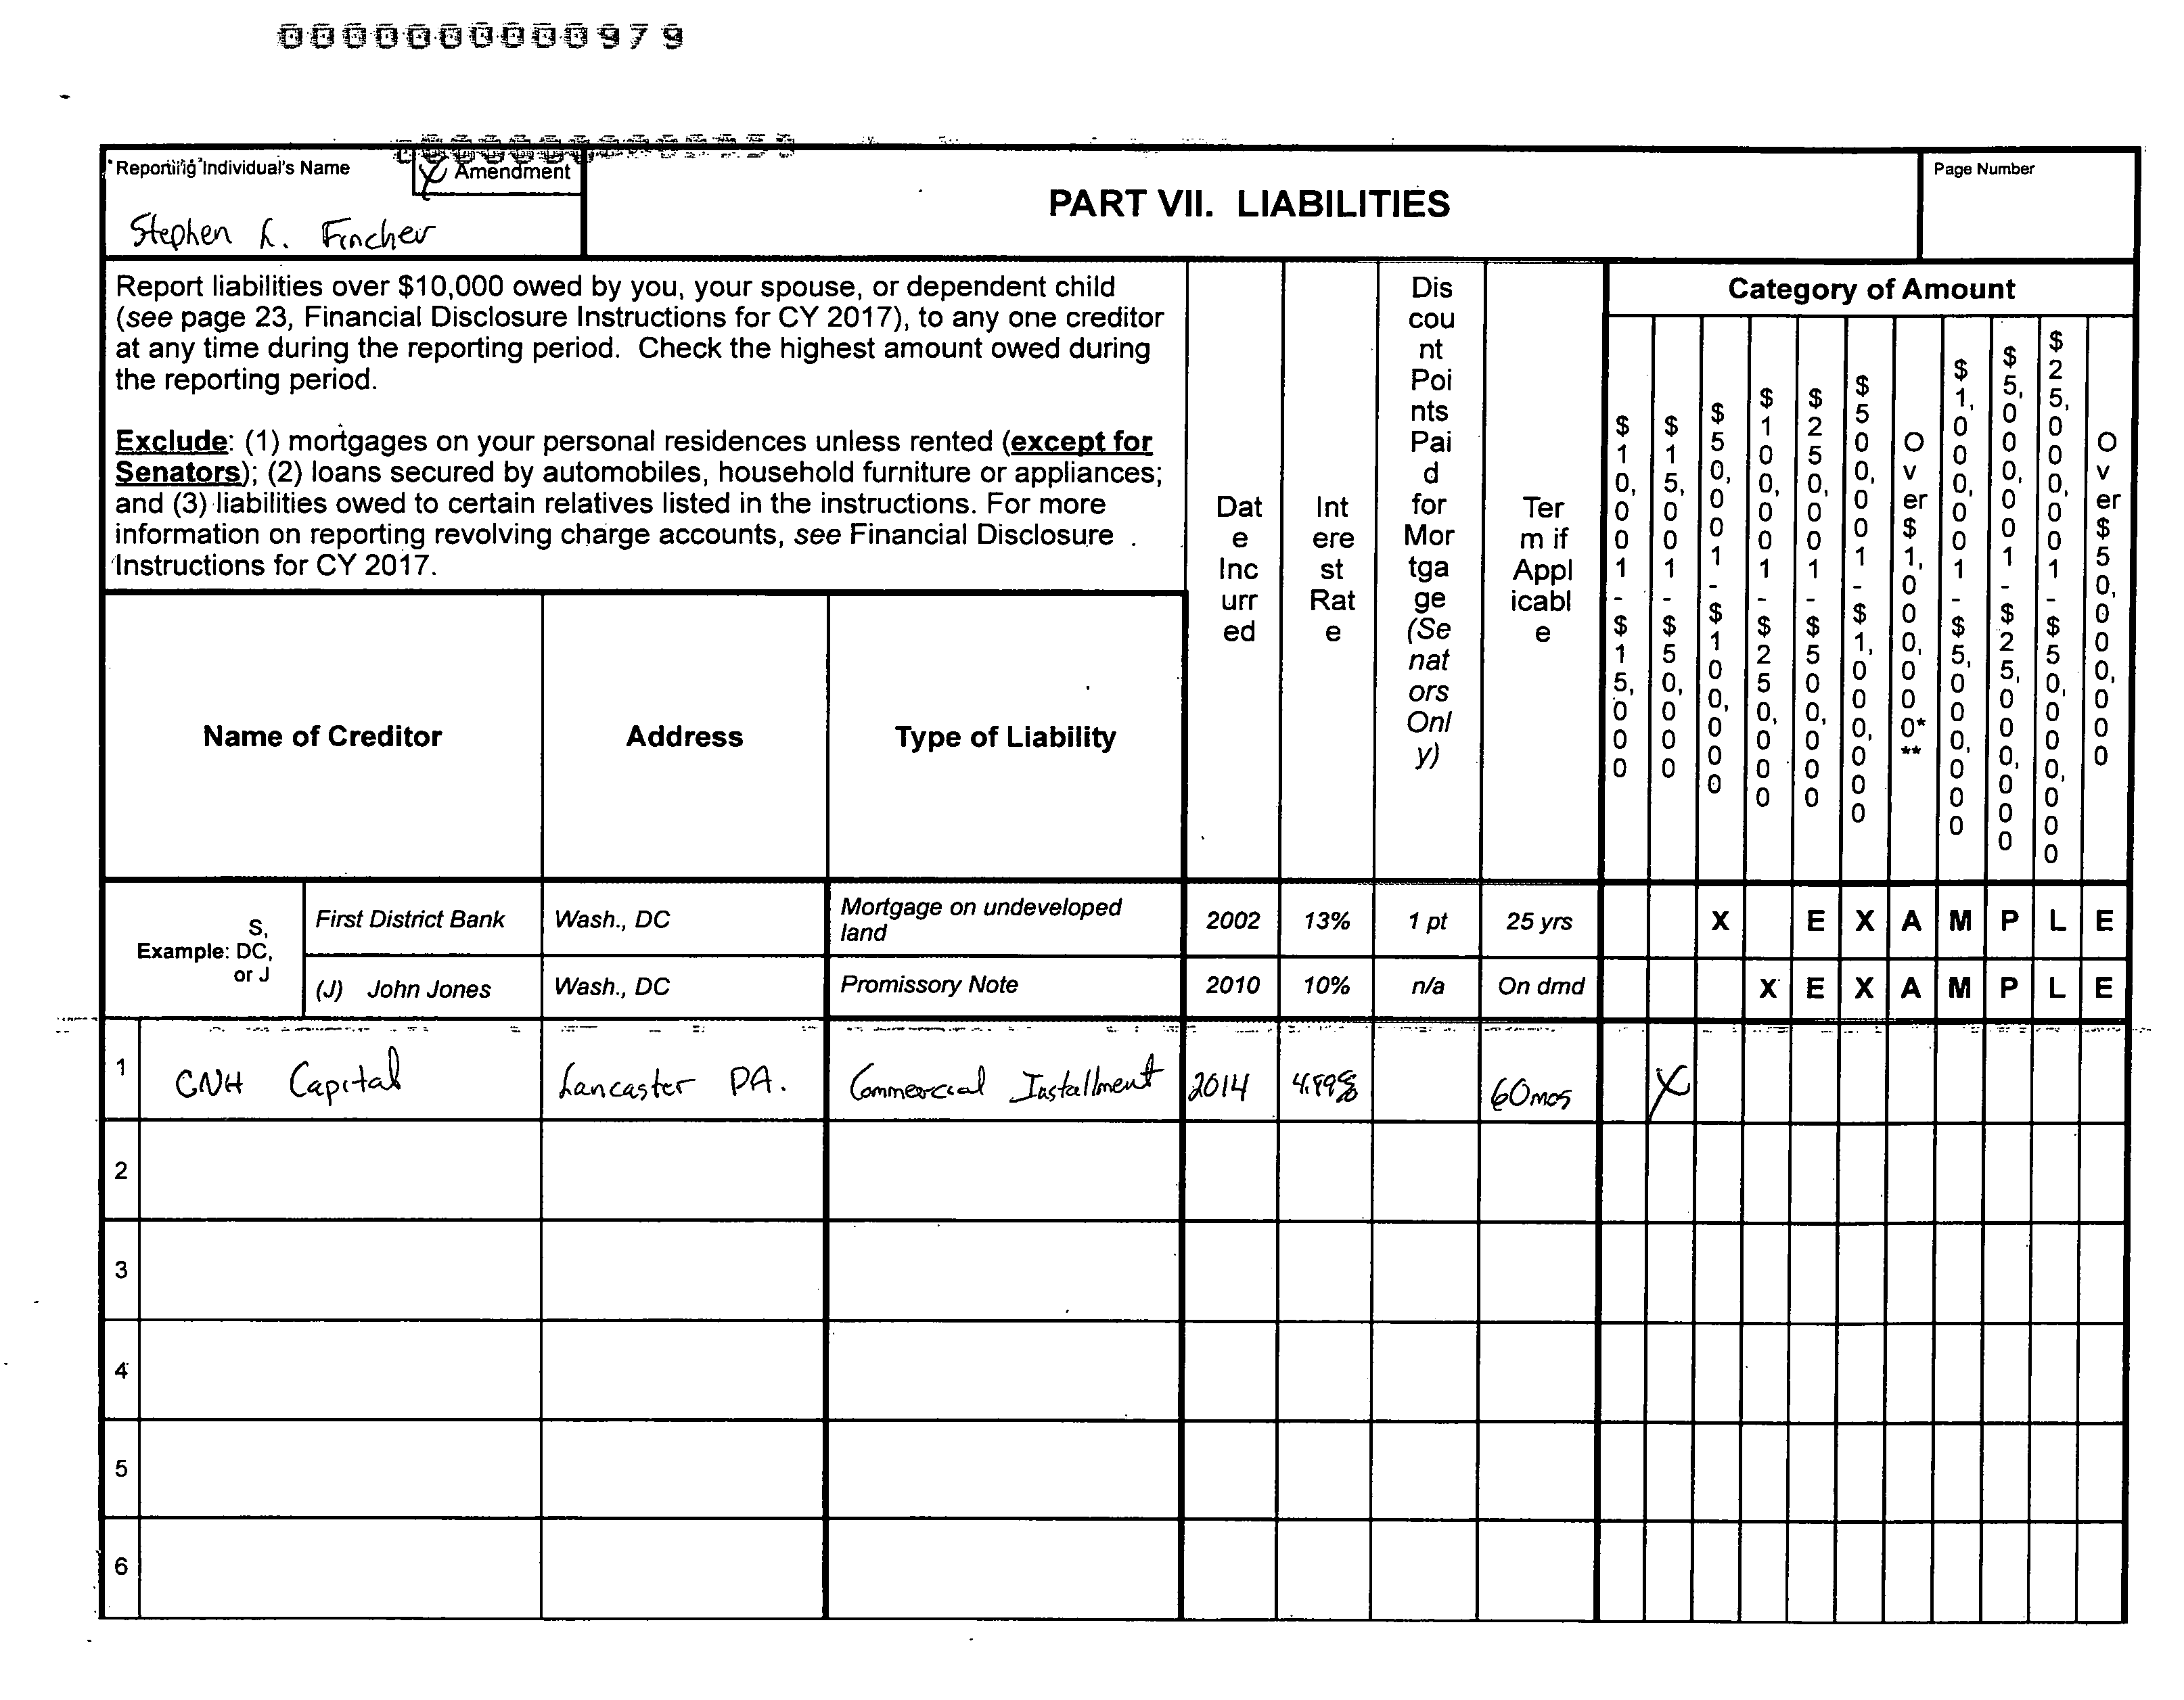 0000000000979
Reporting Individual's Name
Amendment
Stephen L. Fincher
PART VII. LIABILITIES
Page Number
Report liabilities over $10,000 owed by you, your spouse, or dependent child
(see page 23, Financial Disclosure Instructions for CY 2017), to any one creditor
at any time during the reporting period. Check the highest amount owed during
the reporting period.
Exclude: (1) mortgages on your personal residences unless rented (except for
Senators); (2) loans secured by automobiles, household furniture or appliances;
and (3) liabilities owed to certain relatives listed in the instructions. For more
information on reporting revolving charge accounts, see Financial Disclosure
Instructions for CY 2017.
Name of Creditor
Address
Type of Liability
Dat
e
Inc
urr
ed
Int
ere
st
Rat
e
Dis
cou
nt
Poi
nts
Pai
d
for
Mor
tga
ge
(Se
nat
ors
Onl
y)
Ter
m if
Appl
icabl
e
Category of Amount
$10,001-$15,000
$15,001-$50,000
$50,001-$100,000
$100,001-$250,000
$250,001-$500,000
$500,001-$1,000,000
Over $1,000,000***
$1,000,001-$5,000,000
$5,000,001-$25,000,000
$25,000,001-$50,000,000
Over $50,000,000
Example: S,
DC,
or J
First District Bank Wash., DC Mortgage on undeveloped land 2002 13% 1 pt 25 yrs X E X A M P L E
(J) John Jones Wash., DC Promissory Note 2010 10% n/a On dmd X E X A M P L E
1 CNH Capital Lancaster PA. Commercial Installment 2014 4.99% 60mos X
2
3
4
5
6